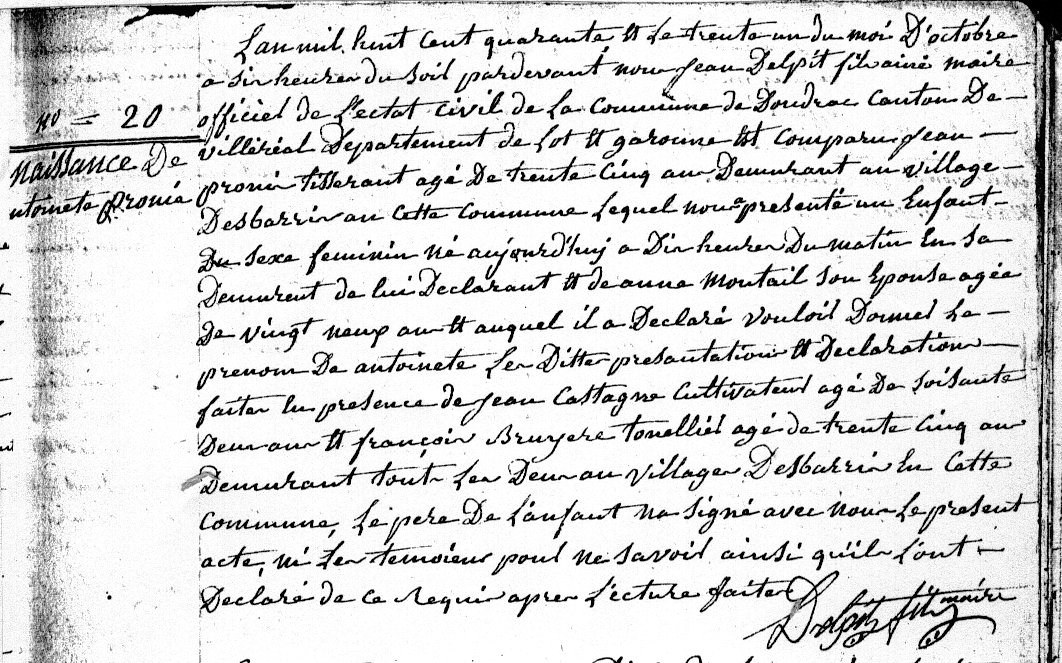 Lan mil huit cent quarante et Le trente un du moi D'octobre
a six heures du soil pardevant nous Jean Delpit fils ainé maire
officiel de L'ectat civil de La Commune de Doudrac Canton De
villéréal Departement de Lot et garonne est Comparu Jean
promis tisserant agé De trente Cinq ans Demurant au village
Desbarris au Cette Commune Lequel nous presenté un Enfant
Du sexe feminin né aujourd'huj a Dix heures Du matin En sa
Demurent de lui Declarant et de anne montail son Eponse agée
De vingt neuf ans et auquel il a Declaré vouloir Donnel Le
prenom De antoinete Les Dittes presantations et Declaration
faites En presence de Jean Castagne Cultivateur agé De soisante
Deux ans et françois Bruyere tonelliés agé de trente Cinq ans
Demurant tout Les Deux au village Desbarris En Cette
Commune, Le pere De L'anfant na signé avec nous Le present
acte, ni Les temoiens poul ne savoil ainsi qu'ils L'ont
Declaré de ce Requis apres L'ecture faites
Delpit fils maire
no = 20
naissance De
ntoinete promié